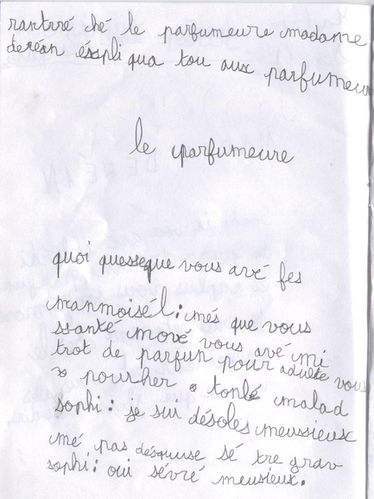 rantrré ché le parfumeure madame
deréan éxspli qua tou aux parfumeur
le parfumeure
quoi quesseque vous avé fes
manmoisél: més que vous
ssanté mové vous avé mi
trot de parfun pour adulte vous
pourher tonbé malad
sophi: je sui désoles meussieux
mé pas désscuse sé tre grav
sophi: oui sévré meusieux.